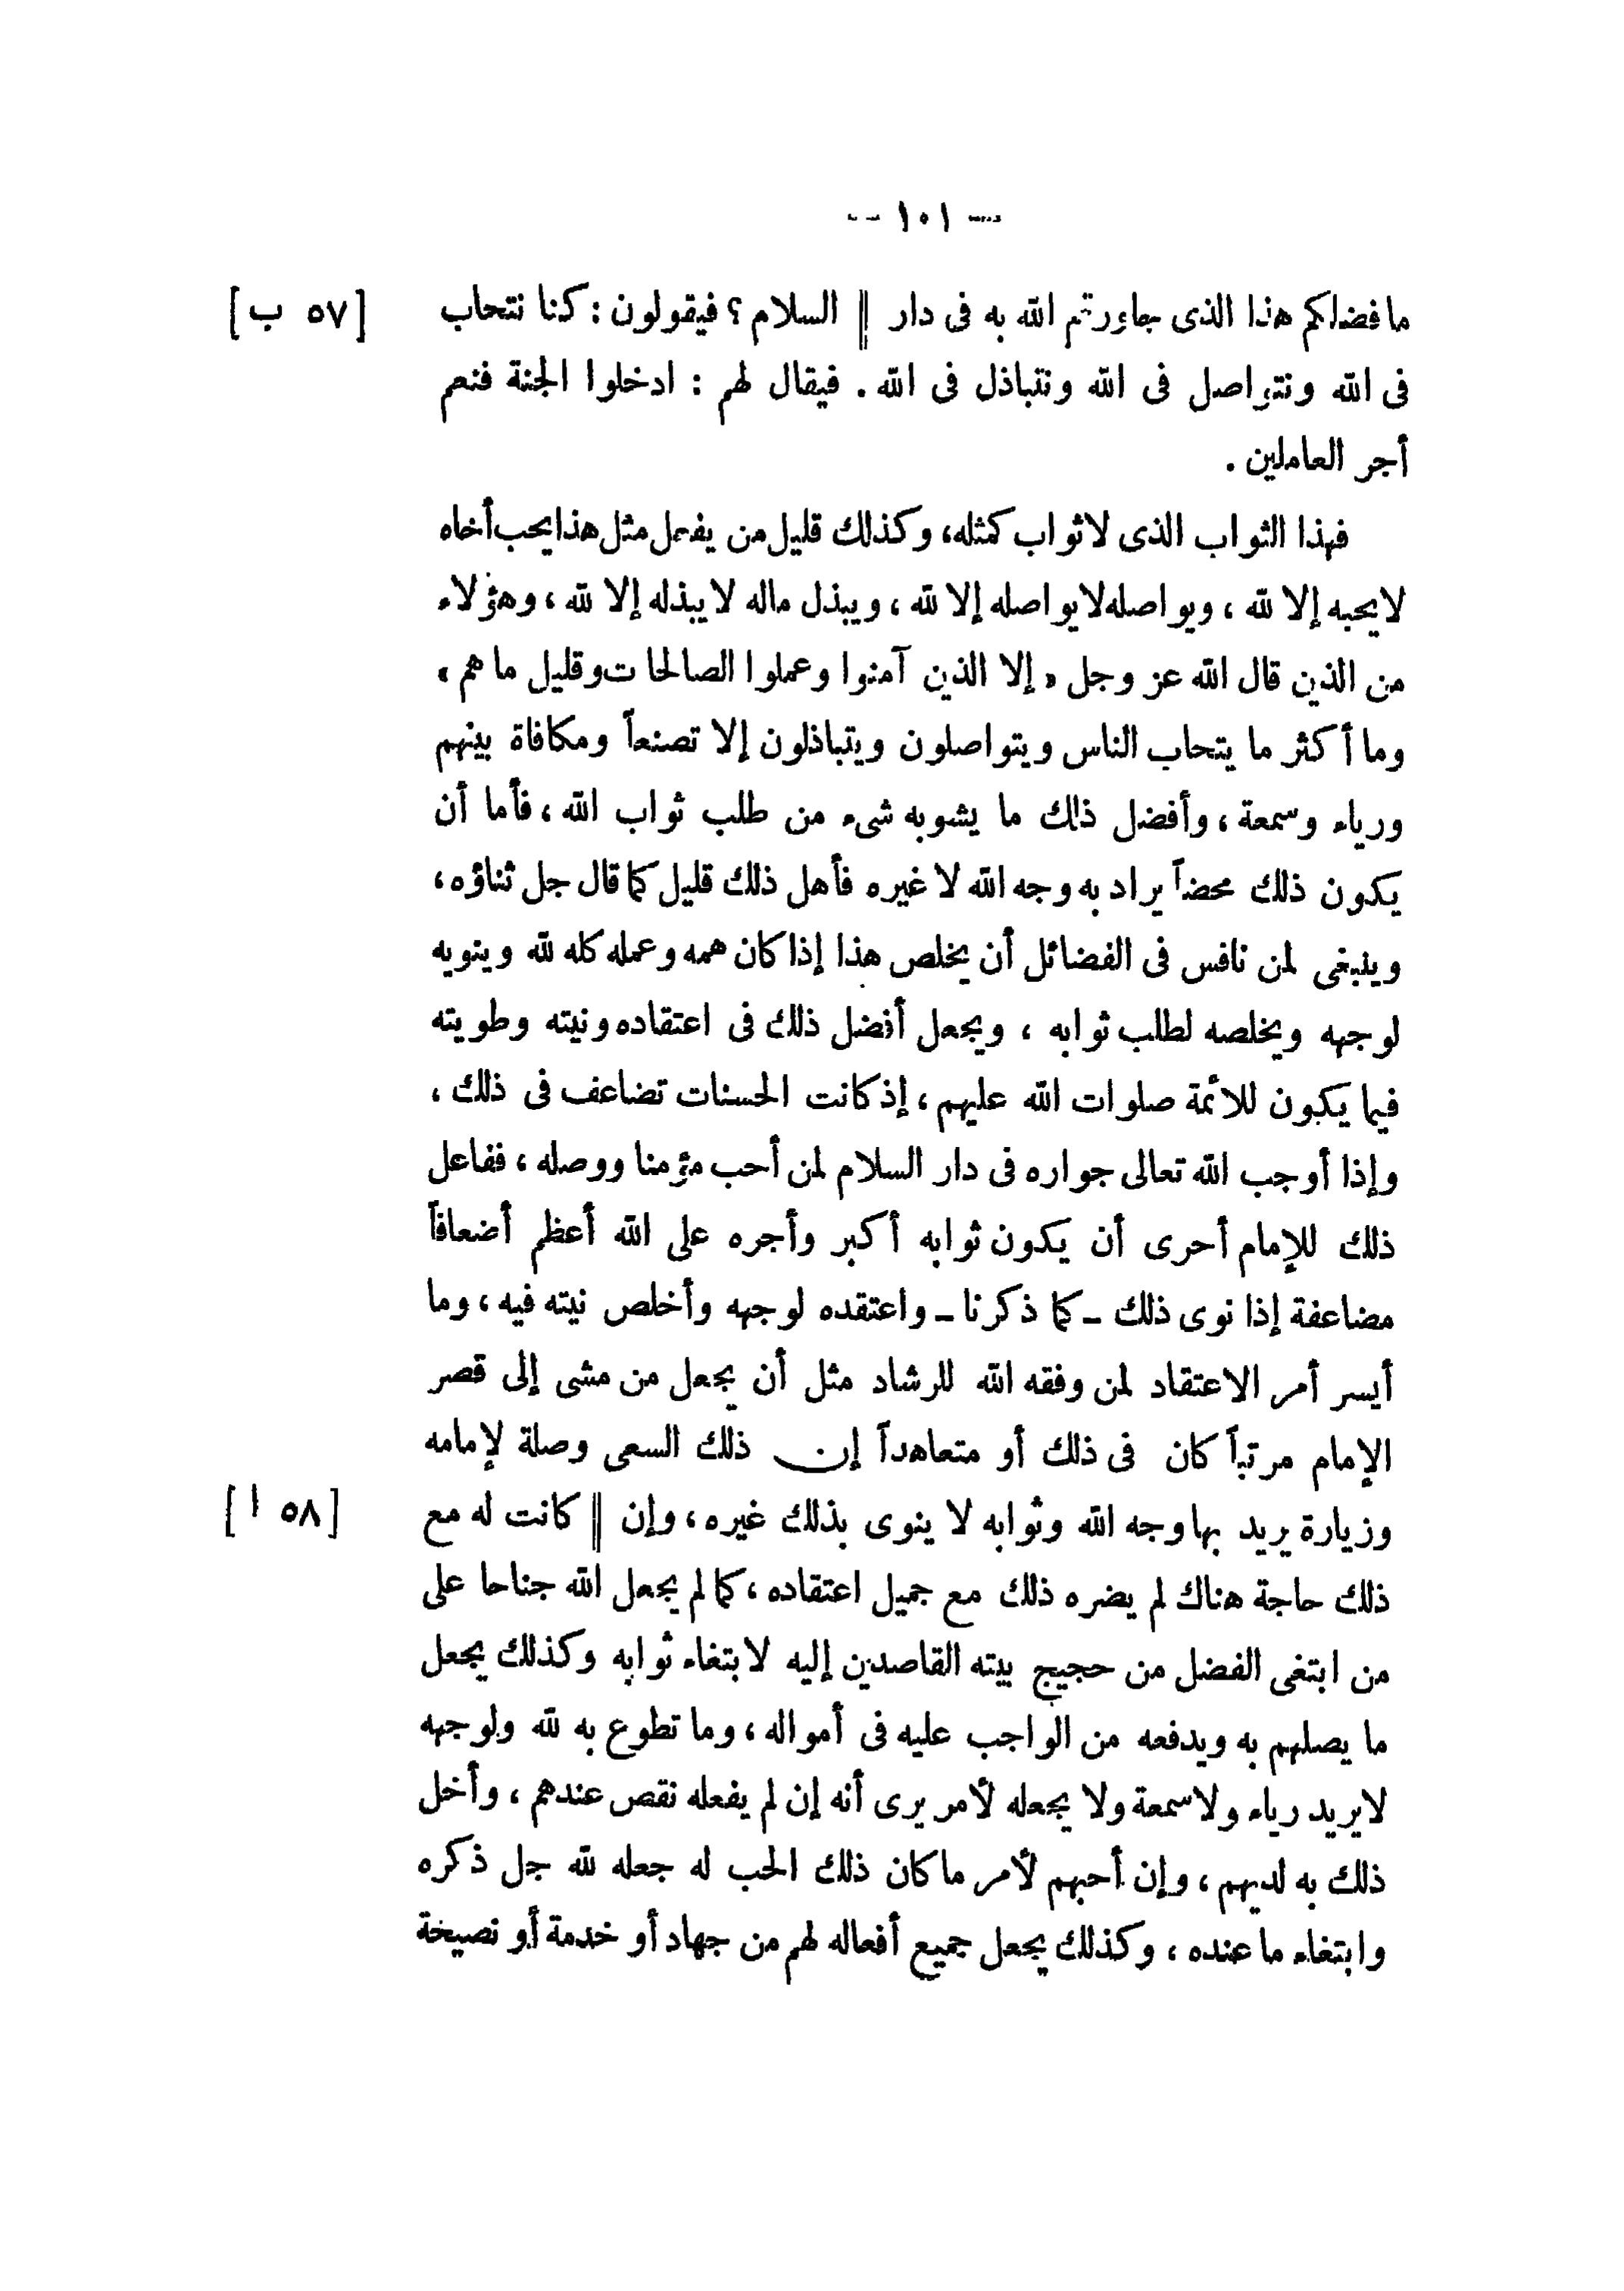 — ١٠١ —
ما فضلكم هذا الذى جاورتم الله به فى دار || السلام ؟ فيقولون : كنا نتحاب [ ٥٧ ب ]
فى الله ونتواصل فى الله ونتباذل فى الله . فيقال لهم : ادخلوا الجنة فنعم
أجر العاملين .
فهذا الثواب الذى لاثواب كمثله، وكذلك قليل من يفعل مثل هذا يحب أخاه
لايحبه إلا لله ، ويواصله لايواصله إلا لله ، ويبذل ماله لا يبذله إلا لله ، وهؤلاء
من الذين قال الله عز وجل « إلا الذين آمنوا وعملوا الصالحات وقليل ما هم »
وما أكثر ما يتحاب الناس ويتواصلون ويتباذلون إلا تصنعاً ومكافاة بينهم
ورياء وسمعة ، وأفضل ذلك ما يشوبه شىء من طلب ثواب الله ، فأما أن
يكون ذلك محضاً يراد به وجه الله لا غيره فأهل ذلك قليل كما قال جل ثناؤه ،
وينبغى لمن نافس فى الفضائل أن يخلص هذا إذا كان همه وعمله كله لله وينويه
لوجهه ويخلصه لطلب ثوابه ، ويجعل أفضل ذلك فى اعتقاده ونيته وطويته
فيما يكون للائمة صلوات الله عليهم ، إذ كانت الحسنات تضاعف فى ذلك ،
وإذا أوجب الله تعالى جواره فى دار السلام لمن أحب مؤمنا ووصله ، ففاعل
ذلك للإمام أحرى أن يكون ثوابه أكبر وأجره على الله أعظم أضعافاً
مضاعفة إذا نوى ذلك ـ كما ذكرنا ـ واعتقده لوجهه وأخلص نيته فيه ، وما
أيسر أمر الاعتقاد لمن وفقه الله للرشاد مثل أن يجعل من مشى إلى قصر
الإمام مرتباً كان فى ذلك أو متعاهداً إن ذلك السعى وصلة لإمامه
وزيارة يريد بها وجه الله وثوابه لا ينوى بذلك غيره ، وإن || كانت له مع [ ٥٨ ا ]
ذلك حاجة هناك لم يضره ذلك مع جميل اعتقاده ، كما لم يجعل الله جناحا على
من ابتغى الفضل من حجيج بيته القاصدين إليه لابتغاء ثوابه وكذلك يجعل
ما يصلهم به ويدفعه من الواجب عليه فى أمواله ، وما تطوع به لله ولوجهه
لايريد رياء ولاسمعة ولا يجعله لأمر يرى أنه إن لم يفعله نقص عندهم ، وأخل
ذلك به لديهم ، وإن أحبهم لأمر ما كان ذلك الحب له جعله لله جل ذكره
وابتغاء ما عنده ، وكذلك يجعل جميع أفعاله لهم من جهاد أو خدمة أو نصيحة